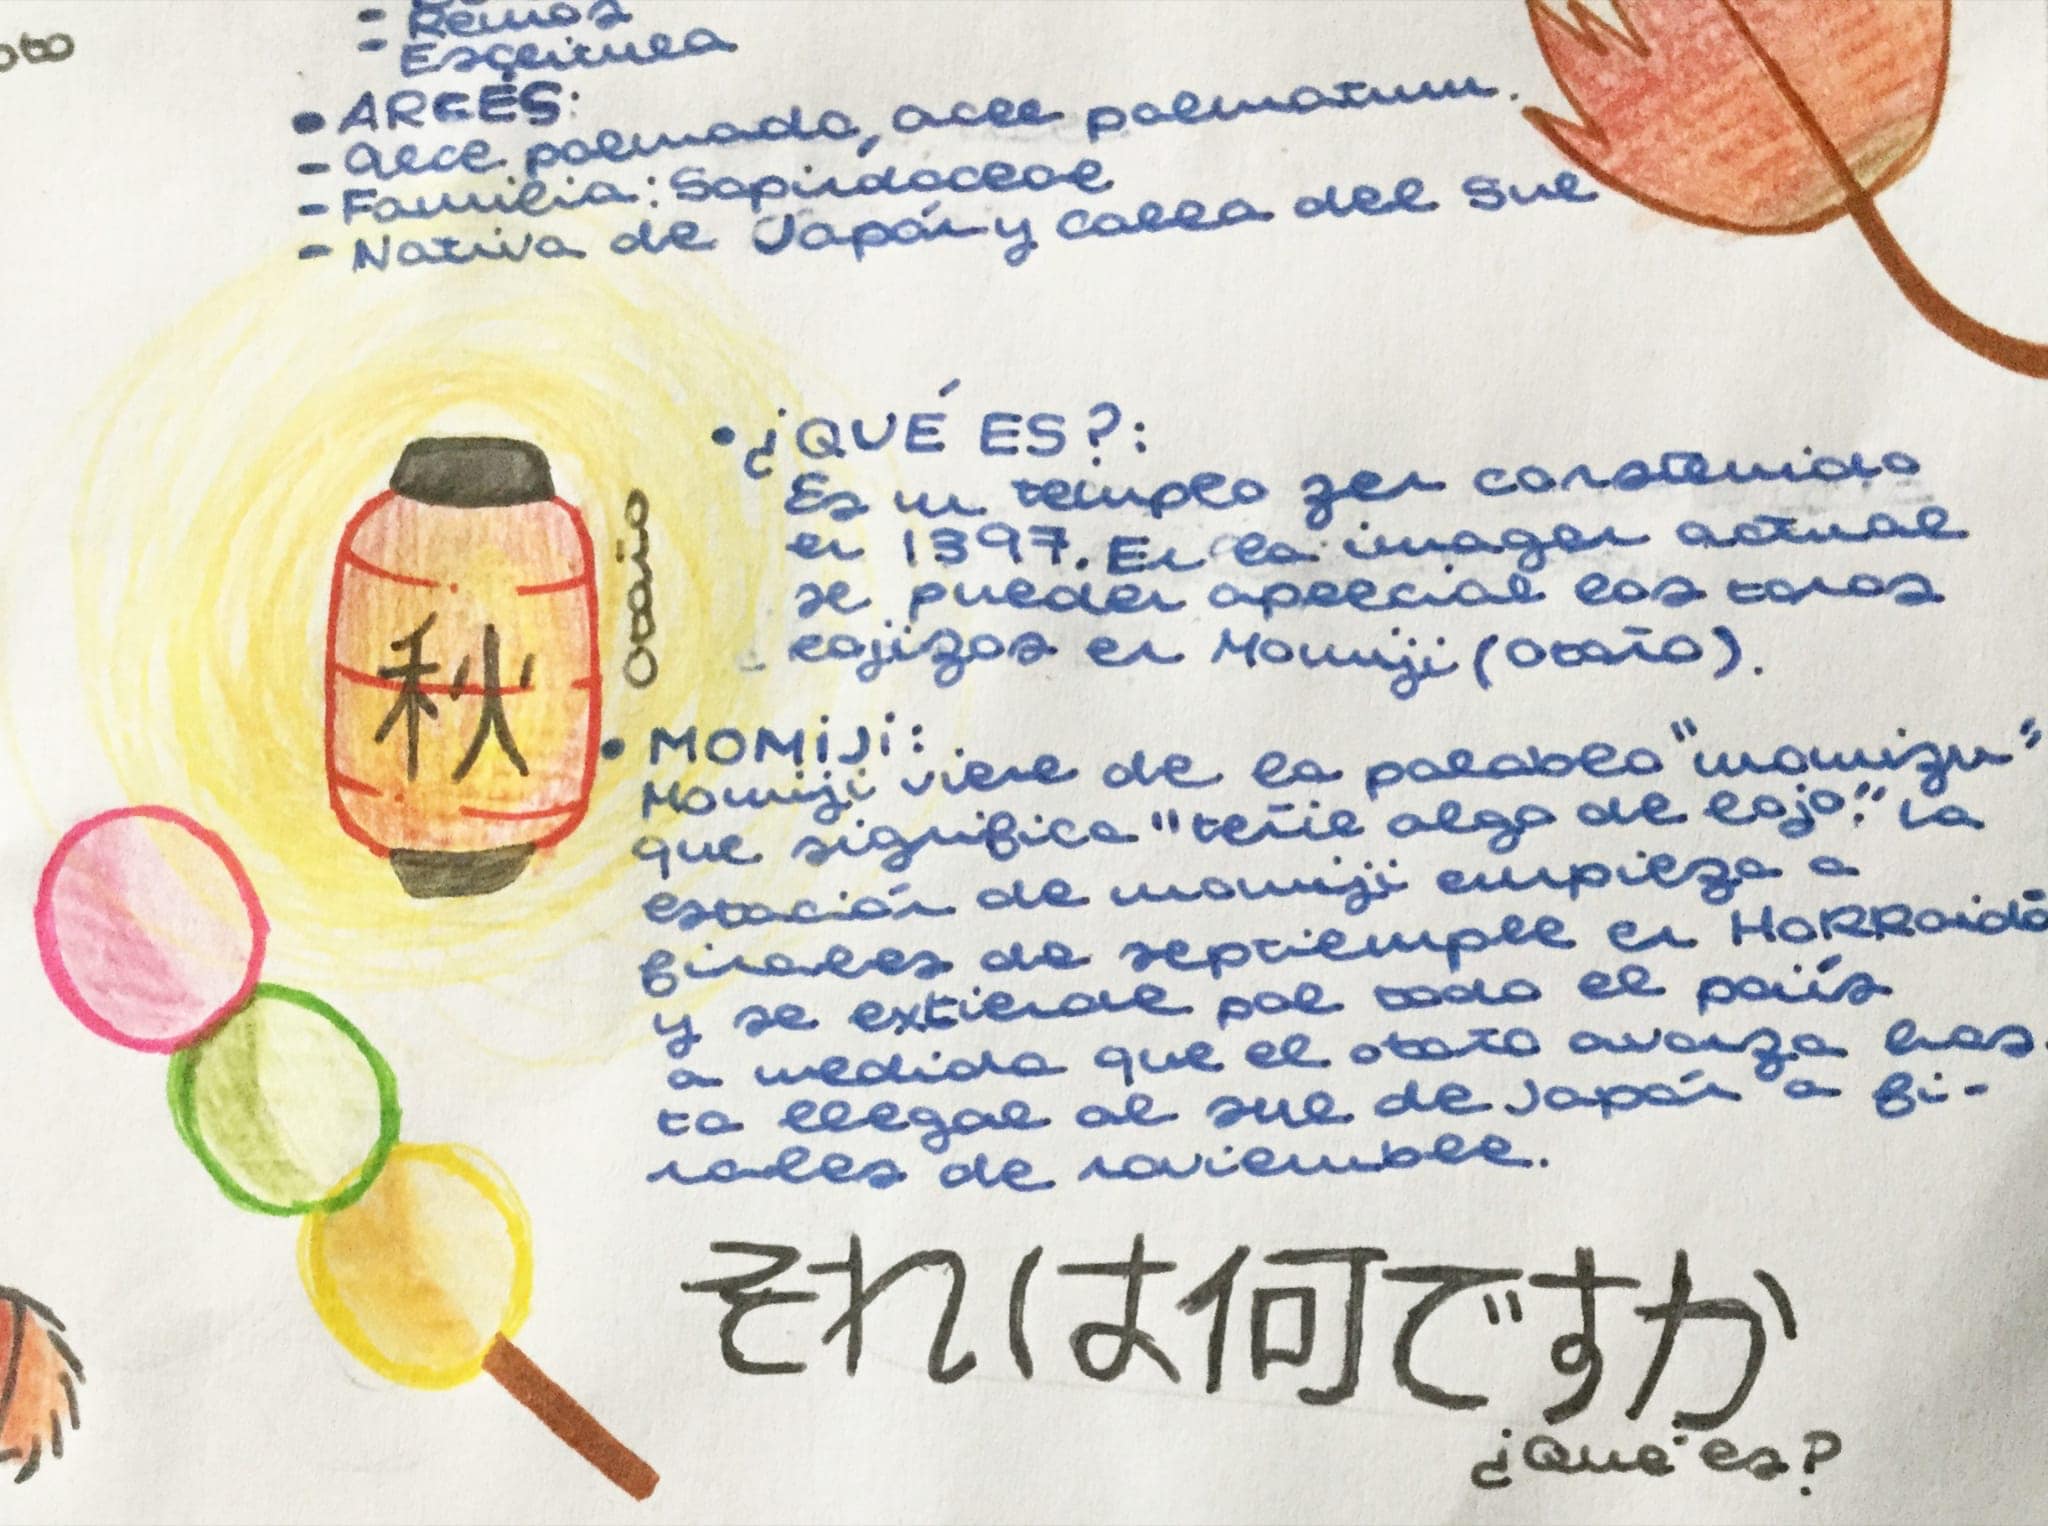 - Remos
- Escritura
• ARCES:
- Arce palmado, acer palmatum.
- Familia: Sapindaceae
- Nativa de Japón y Corea del Sur
• ¿QUÉ ES?:
Es un templo zen construido
en 1397. En la imagen actual
se pueden apreciar los tonos
rojizos en Momiji (otoño).
秋
Otoño
• MOMIJI:
Momiji viene de la palabra "momizu"
que significa "teñir algo de rojo". La
estación de momiji empieza a
finales de septiempre en Hokkaidō
y se extiende por todo el país
a medida que el otoño avanza has-
ta llegar al sur de Japón a fi-
nales de noviembre.
それは何ですか
¿Qué es?